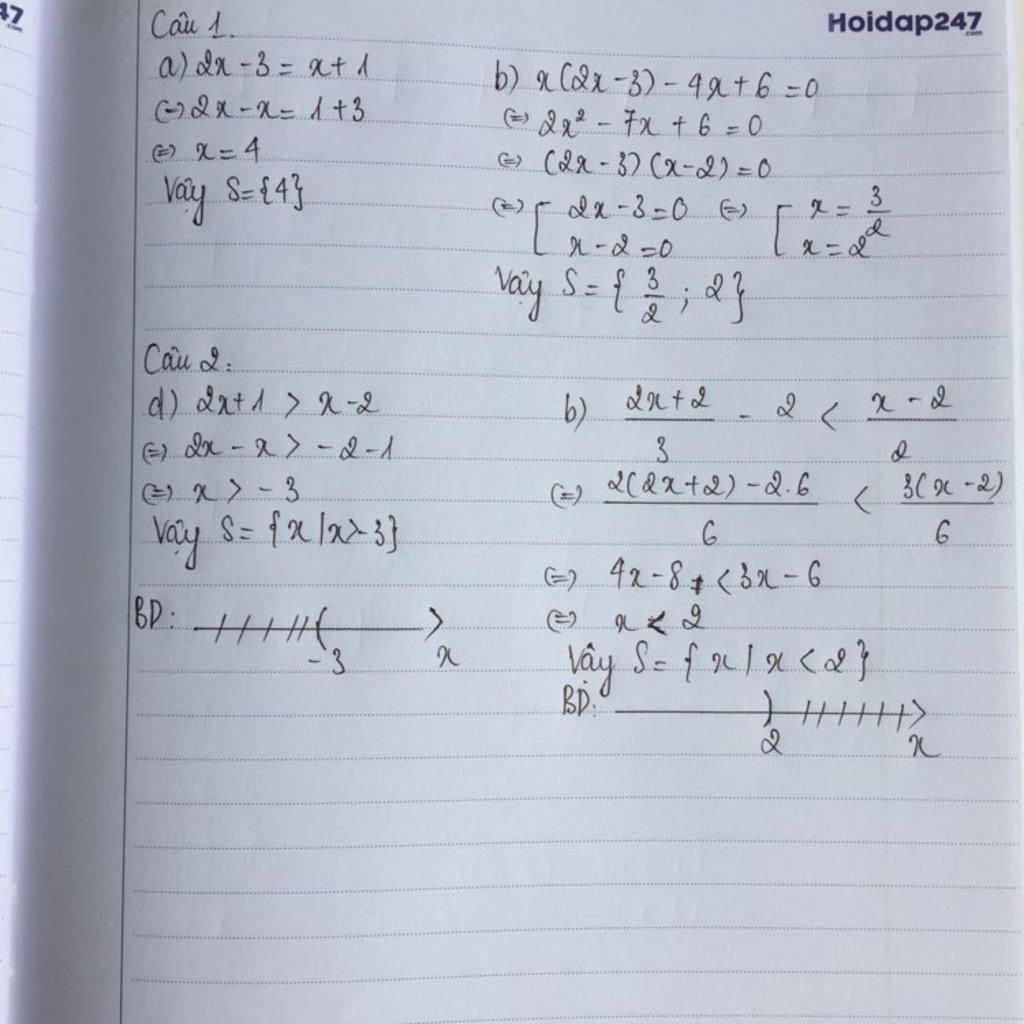 47
.com
Hoidap247
.com
Câu 1.
a) 2x - 3 = x + 1
(=) 2x - x = 1 + 3
(=) x = 4
Vậy S = {4}
b) x(2x - 3) - 4x + 6 = 0
(=) 2x² - 7x + 6 = 0
(=) (2x - 3)(x - 2) = 0
(=) [ 2x - 3 = 0 (=) [ x = 3/2
x - 2 = 0 x = 2
Vậy S = { 3/2 ; 2 }
Câu 2:
d) 2x + 1 > x - 2
(=) 2x - x > -2 - 1
(=) x > -3
Vậy S = {x | x > -3}
BD:
-3 x
b) (2x + 2)/3 - 2 < (x - 2)/2
(=) (2(2x + 2) - 2.6)/6 < (3(x - 2))/6
(=) 4x - 8 < 3x - 6
(=) x < 2
Vậy S = { x | x < 2 }
BD:
2 x